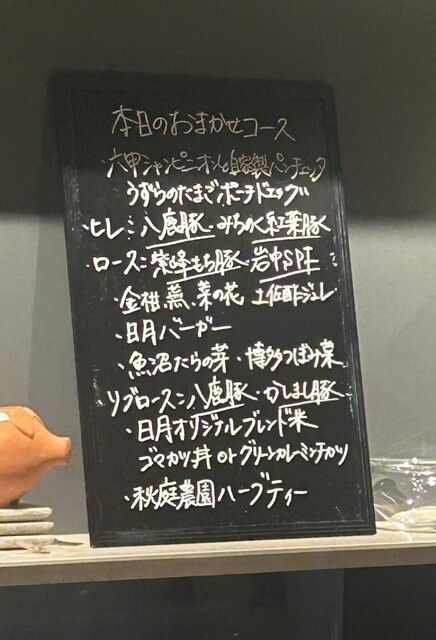 本日のおまかせコース
・六甲シャンピニオンと自家製パンチェッタ
うずらのたまごポーチドエッグ
・ヒレ:八鹿豚・みちのく紅葉豚
・ロース:紫峰もち豚・岩中SPF
・金柑、蕪、菜の花 土佐酢ジュレ
・日月バーガー
・魚沼たらの芽・博多つぼみ菜
リブロース:八鹿豚・かしまし豚
・日月オリジナルブレンド米
ゴマカツ丼 or グリーンカレーミンチカツ
・秋庭農園ハーブティー